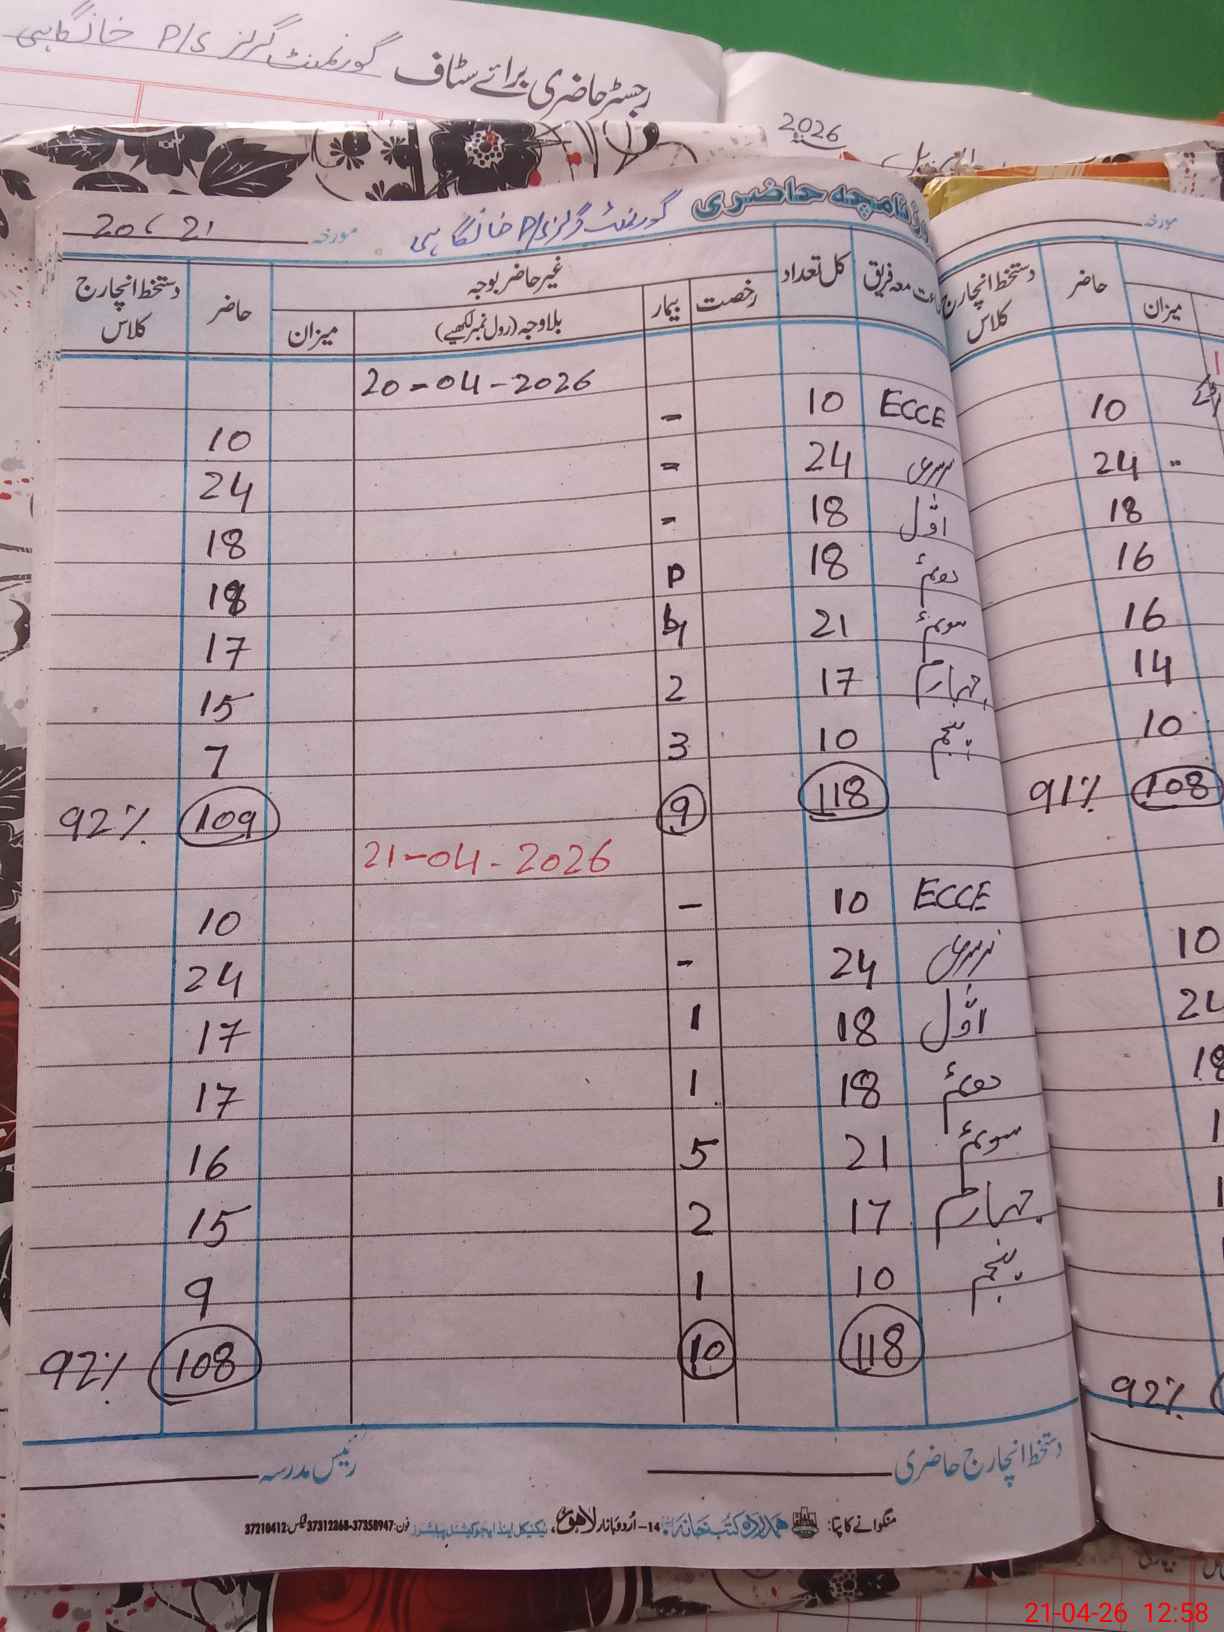 رجسٹر حاضری برائے سٹاف گورنمنٹ گرلز P/S خانگاہی
2026
روزنامچہ حاضری گورنمنٹ گرلز P/S خانگاہی مورخہ 20، 21
جماعت معہ فریق کل تعداد غیر حاضر بوجہ حاضر دستخط انچارج کلاس
رخصت بیمار بلاوجہ (رول نمبر لکھیے) میزان
20-04-2026
ECCE 10 - 10
نرسری 24 - 24
اوّل 18 - 18
دوئم 18 18
سوئم 21 4 17
چہارم 17 2 15
پنجم 10 3 7
118 9 109 92%
21-04-2026
ECCE 10 - 10
نرسری 24 - 24
اوّل 18 1 17
دوئم 18 1 17
سوئم 21 5 16
چہارم 17 2 15
پنجم 10 1 9
118 10 108 92%
دستخط انچارج حاضری رئیس مدرسہ
منگوانے کا پتا: ہمدرد کتب خانہ 14-اُردو بازار لاہور، ٹیکنیکل اینڈ ایجوکیشنل پبلشرز فون: 37358947-37312268 فیکس: 37210412
مورخہ
میزان حاضر دستخط انچارج کلاس
10
24
18
16
16
14
10
108 91%
10
24
18
92%
21-04-26 12:58